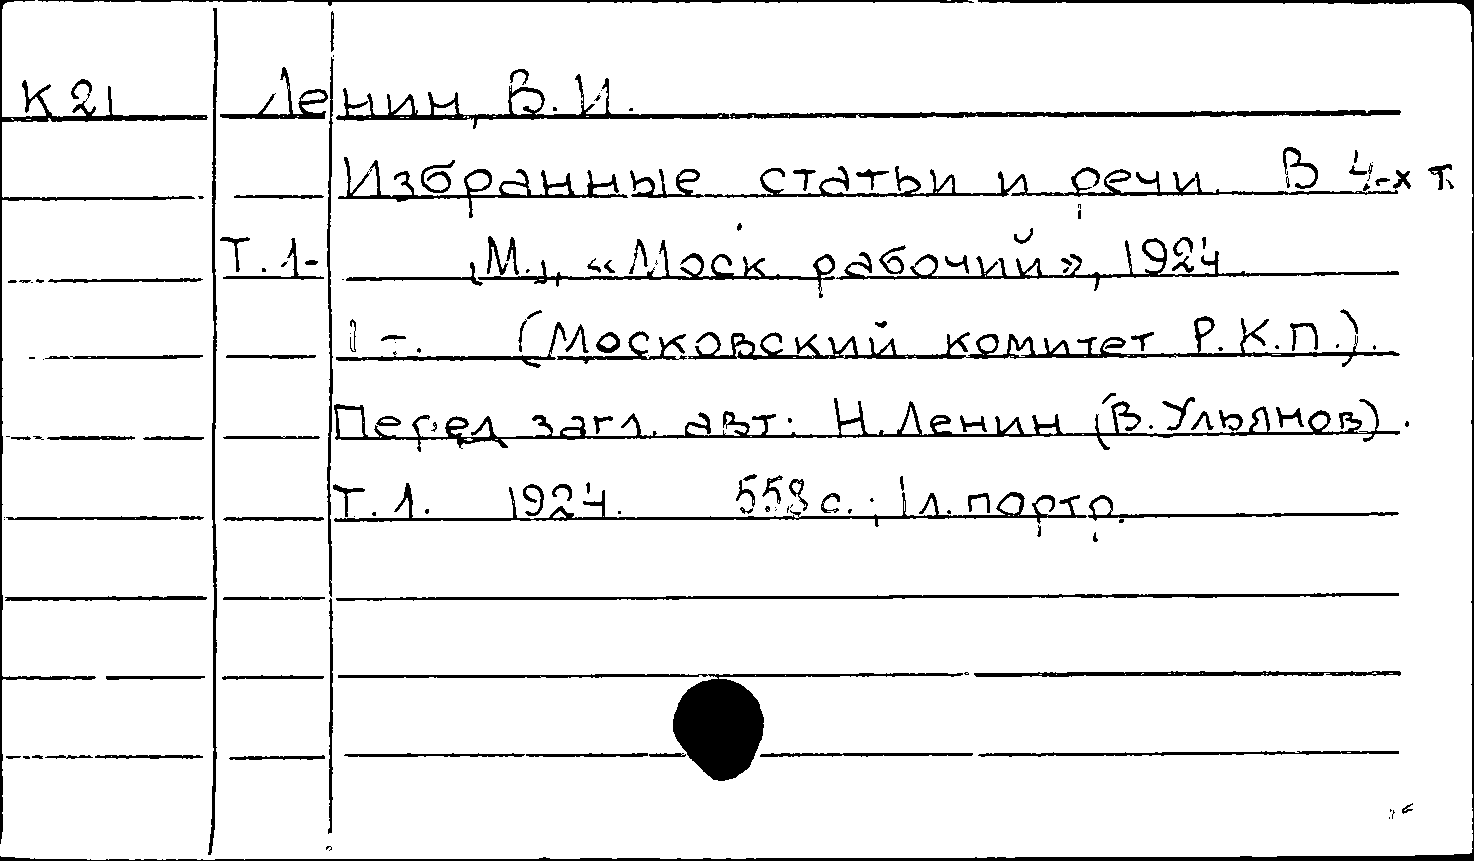 К21 Ленин, В.И.
Избранные статьи и речи. В 4-х т.
Т. 1- [М.], «Моск. рабочий», 1924
1 т. (Московский комитет Р.К.П.).
Перед загл. авт: Н. Ленин (В. Ульянов).
Т. 1. 1924. 558 с.; 1 л. портр.